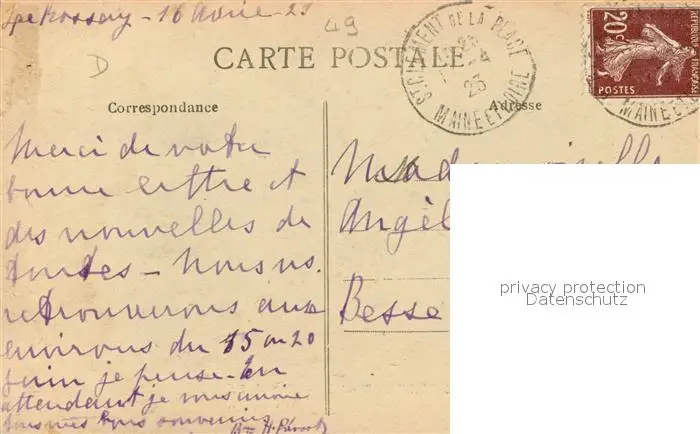 16 Avril - 23
49
D
CARTE POSTALE
ST CLEMENT DE LA PLACE
23
MAINE ET LOIRE
RÉPUBLIQUE FRANÇAISE
20c
POSTES
MAINE ET LOIRE
Correspondance
Adresse
Merci de votre
bonne lettre et
des nouvelles de
toutes - Nous ns.
retrouverons aux
environs du 15 ou 20
Juin je pense - En
attendant je vous envoie
tous mes bons souvenirs
Angèl
Besse
privacy protection
Datenschutz